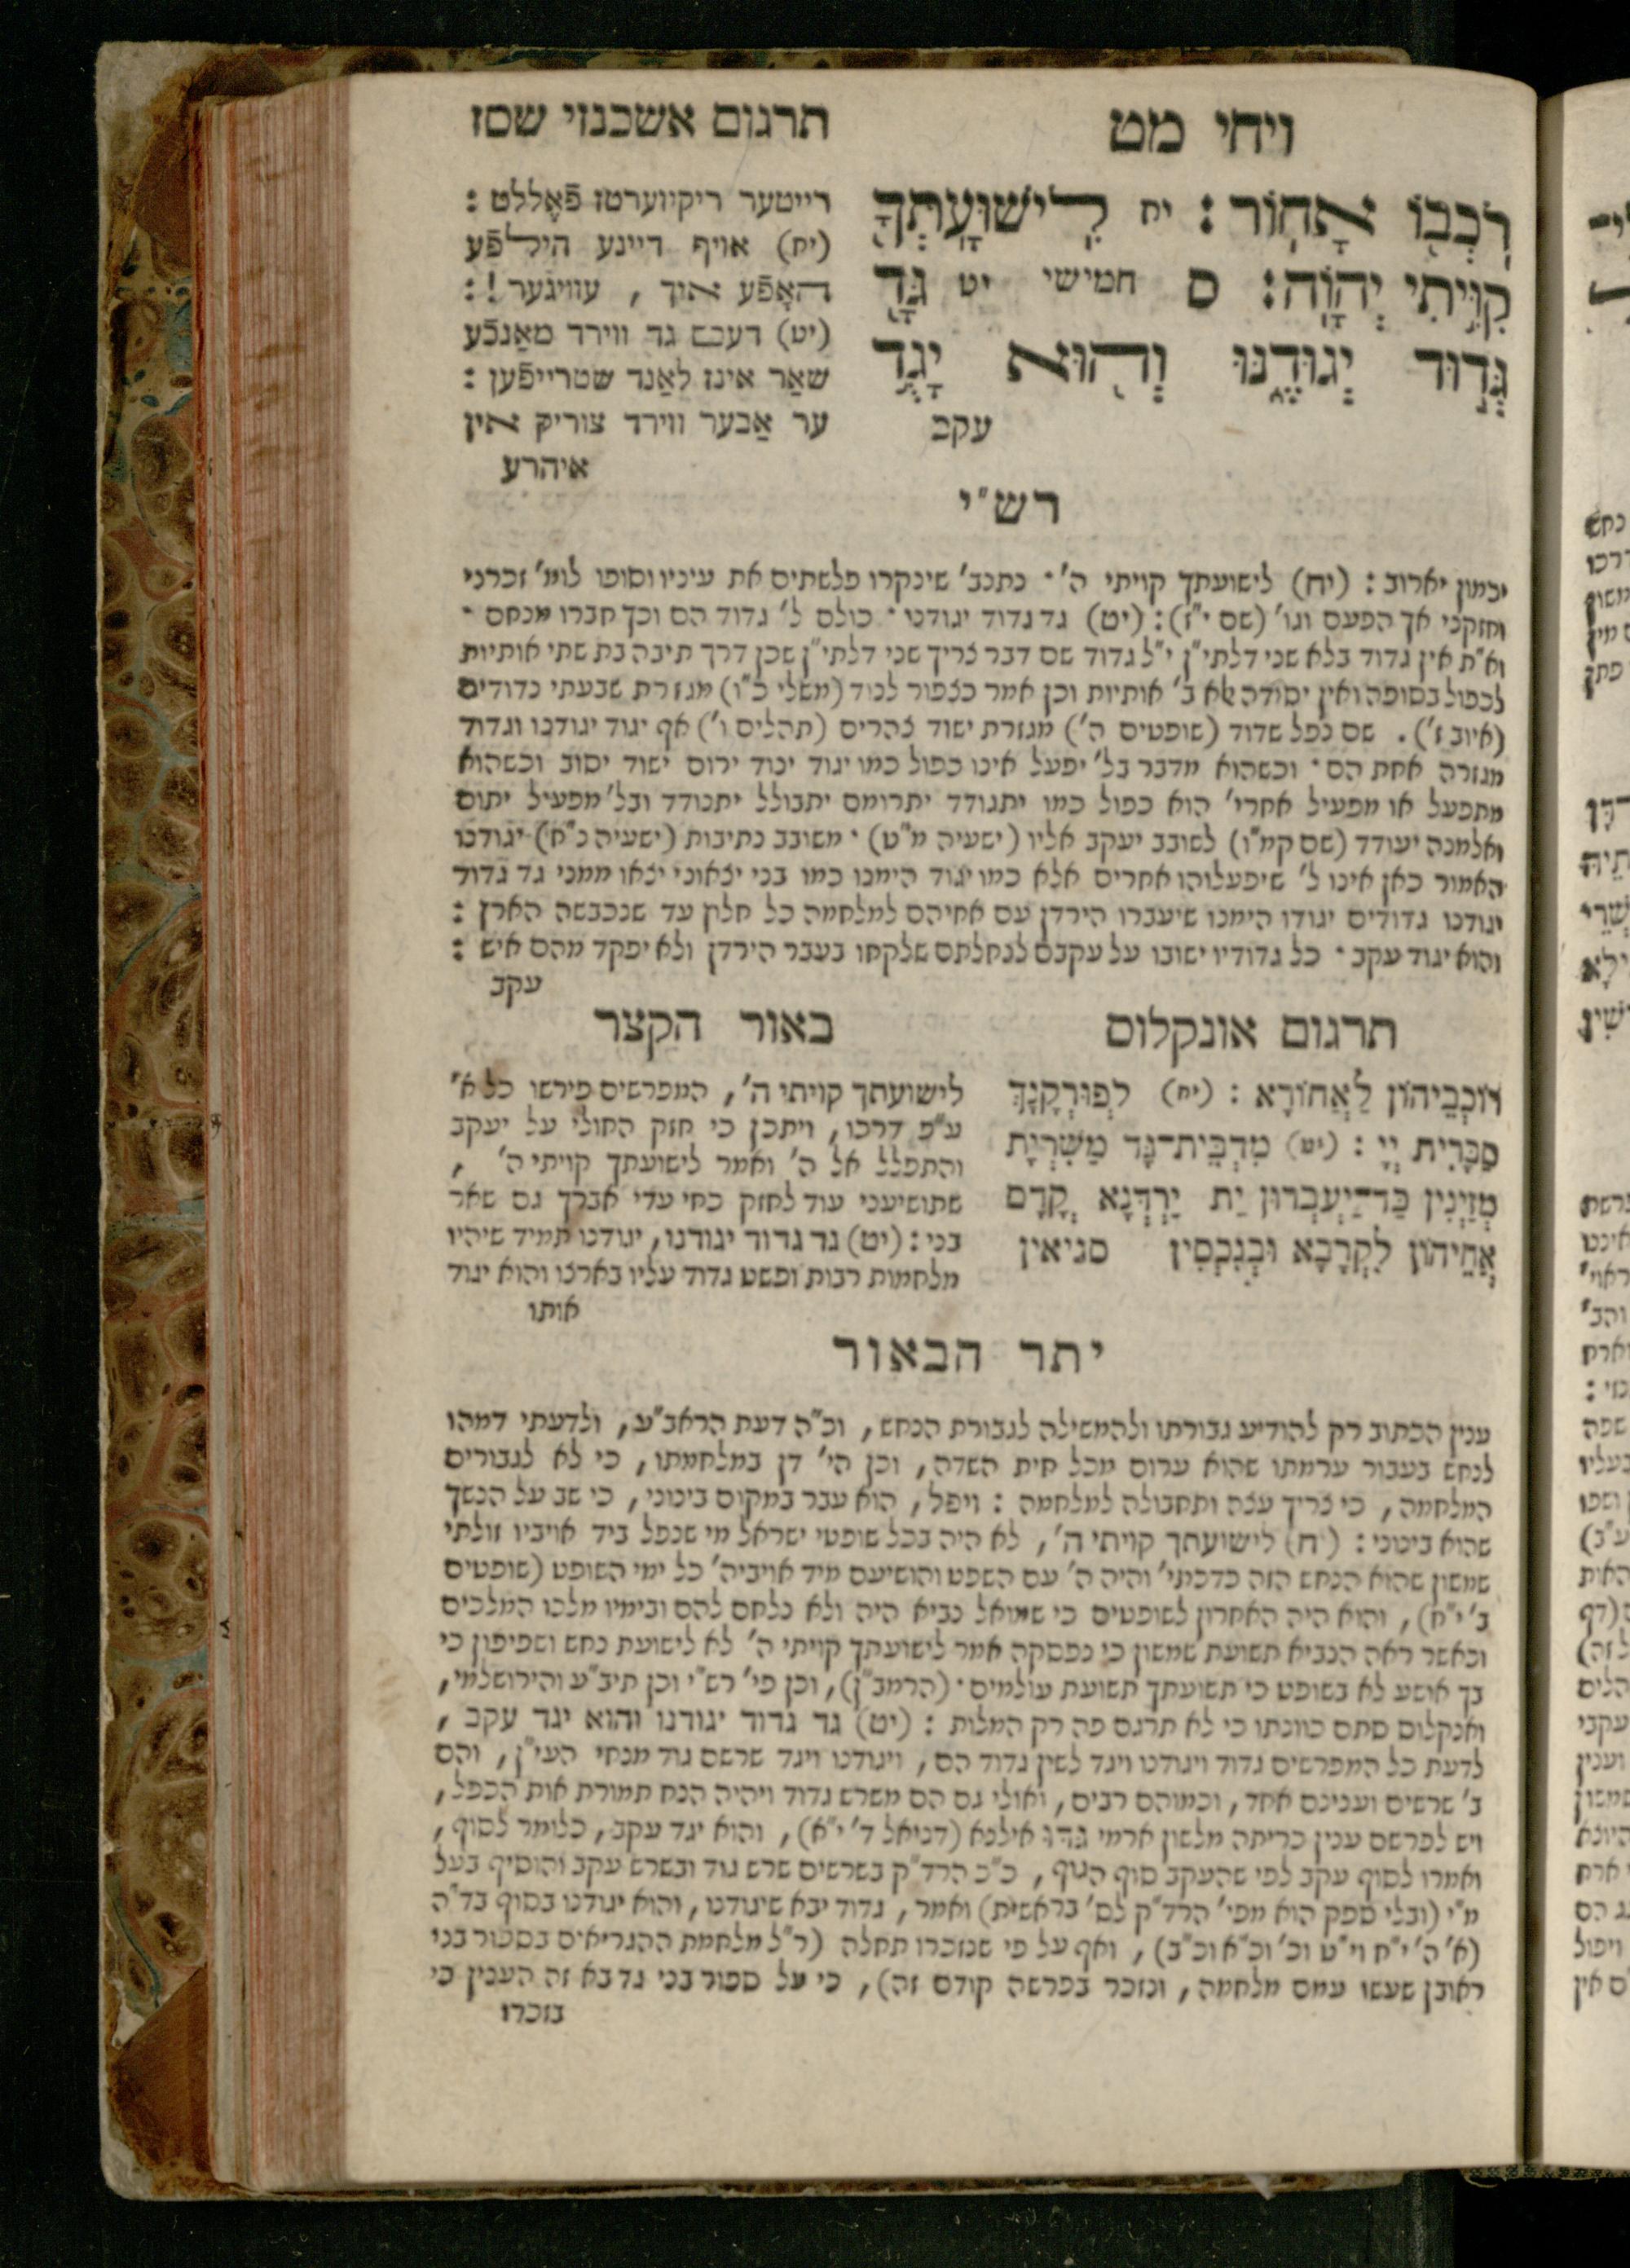 ויחי מט
תרגום אשכנזי שסז
רֹכְבוֹ אָחוֹר : יח לִישׁוּעָתְךָ
קִוִּיתִי יְהוָה: ס חמישי יט גָּד
גְּדוּד יְגוּדֶנּוּ וְהוּא יָגֻד
עקב
רייטער ריקווערטז פֿאָללט :
(יח) אויף דיינע הילפֿע
האָפֿע איך , עוויגער ! :
(יט) דעם גד ווירד מאַנכֿע
שאַר אינז לאַנד שטרייפֿען :
ער אַבער ווירד צוריק אין
איהרע
רש"י
יכמון יארוב : (יח) לישועתך קויתי ה'· נתנב' שינקרו פלשתים את עיניו וסופו לומ' זכרני
וחזקני אך הפעם וגו' (שם י"ז): (יט) גד גדוד יגודנו · כולם ל' גדוד הם וכך חברו מנחם ·
וא"ת אין גדוד בלא שני דלתי"ן י"ל גדוד שם דבר צריך שני דלתי"ן שכן דרך תיבה בת שתי אותיות
לכפול בסופה ואין יסודה אלא ב' אותיות וכן אמר כצפור לנוד (משלי כ"ו) מגזרת שבעתי נדודים
(איוב ז') . שם נפל שדוד (שופטים ה') מגזרת ישוד צהרים (תהלים ו') אף יגוד יגודנו וגדוד
מגזרה אחת הם · וכשהוא מדבר בל' יפעל אינו כפול כמו יגוד ינוד ירום ישוד ישוב וכשהוא
מתפעל או מפעיל אחרי' הוא כפול כמו יתגודד יתרומם יתבולל יתנודד ובל' מפעיל יתום
ואלמנה יעודד (שם קמ"ו) לשובב יעקב אליו (ישעיה מ"ט) · משובב נתיבות (ישעיה נ"ח) יגודנו
האמור כאן אינו ל' שיפעלוהו אחרים אלא כמו יגוד הימנו כמו בני יצאוני יצאו ממני גד גדוד
יגודנו גדודים יגודו הימנו שיעברו הירדן עם אחיהם למלחמה כל חלוץ עד שנכבשה הארץ :
והוא יגוד עקב · כל גדודיו ישובו על עקבם לנחלתם שלקחו בעבר הירדן ולא יפקד מהם איש :
עקב
תרגום אונקלוס
רוֹכְבֵיהוֹן לַאֲחוֹרָא : (יח) לְפוּרְקָנָךְ
סַבָּרִית יְיָ : (יט) מִדְבֵית־גָּד מַשִׁרְיָת
מְזַיְנִין כַּד־יַעְבְרוּן יַת יַרְדְּנָא קֳדָם
אֲחֵיהוֹן לִקְרָבָא וּבְנִכְסִין סגיאין
באור הקצר
לישועתך קויתי ה' , המפרשים פירשו כל א'
ע"פ דרכו , ויתכן כי חזק החולי על יעקב
והתפלל אל ה' ואמר לישועתך קויתי ה' ,
שתושיעני עוד לחזק כחי עדי אברך גם שאר
בני : (יט) גד גדוד יגודנו , יגודנו תמיד שיהיו
מלחמות רבות ופשט גדוד עליו בארצו והוא יגוד
אותו
יתר הבאור
ענין הכתוב רק להודיע גבורתו ולהמשילה לגבורת הנחש , וכ"ה דעת הראב"ע , ולדעתי דמהו
לנחש בעבור ערמתו שהוא ערום מכל חית השדה , וכן הי' דן במלחמתו , כי לא לגבורים
המלחמה , כי צריך עצה ותחבולה למלחמה : ויפל , הוא עבר במקום בינוני , כי שב על הנשך
שהוא בינוני : (יח) לישועתך קויתי ה' , לא היה בכל שופטי ישראל מי שנפל ביד אויביו זולתי
שמשון שהוא הנחש הזה כדכתי' והיה ה' עם השפט והושיעם מיד אויביה' כל ימי השופט (שופטים
ב' י"ח) , והוא היה האחרון לשופטים כי שמואל נביא היה ולא נלחם להם ובימיו מלכו המלכים
וכאשר ראה הנביא תשועת שמשון כי נפסקה אמר לישועתך קויתי ה' לא לישועת נחש ושפיפון כי
בך אושע לא בשופט כי תשועתך תשועת עולמים · (הרמב"ן) , וכן פי' רש"י וכן תיב"ע והירושלמי ,
ואנקלום סתם כוונתו כי לא תרגם פה רק המלות : (יט) גד גדוד יגודנו והוא יגד עקב ,
לדעת כל המפרשים גדוד ויגודנו ויגד לשון גדוד הם , ויגודנו ויגד שרשם גוד מנחי העי"ן , והם
ב' שרשים וענינם אחד , וכמוהם רבים , ואולי גם הם משרש גדוד ויהיה הנח תמורת אות הכפל ,
ויש לפרשם ענין כריתה מלשון ארמי גדו אילנא (דניאל ד' י"א) , והוא יגד עקב , כלומר לסוף ,
ואמרו לסוף עקב לפי שהעקב סוף הגוף , כ"כ הרד"ק בשרשים שרש גוד ובשרש עקב והוסיף בעל
מ"י (ובלי ספק הוא מפי' הרד"ק לס' בראשית) ואמר , גדוד יבא שיגודנו , והוא יגודנו בסוף בד"ה
(א' ה' י"ח וי"ט וכ' וכ"א וכ"ב) , ואף על פי שנזכרו תחלה (ר"ל מלחמת ההגריאים בספור בני
ראובן שעשו עמם מלחמה , ונזכר בפרשה קודם זה) , כי על ספור בני גד בא זה הענין כי
נזכרו